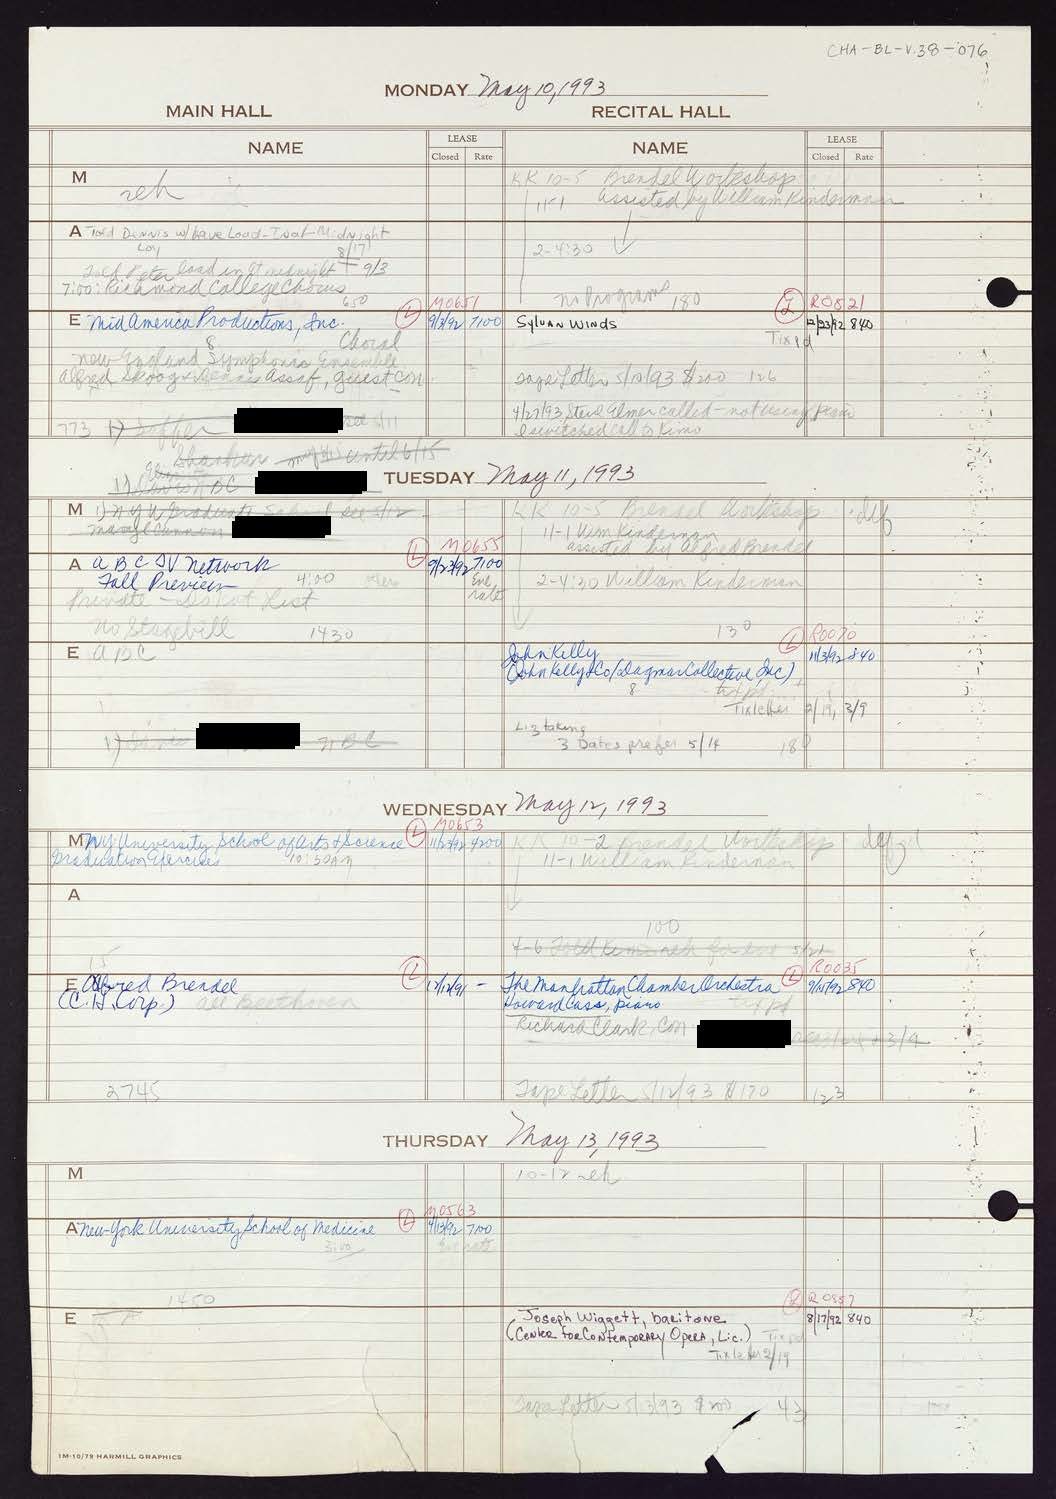 CHA-BL-V.38-076
MONDAY May 10, 1993
MAIN HALL RECITAL HALL
NAME LEASE NAME LEASE
Closed Rate Closed Rate
M reh
KK 10-5 Brendel Workshop
11-1 assisted by William Kinderman
A Told Dennis w/ Dave Load-In at Midnight
Loy 8/17
2-4:30
Told Peter load in at midnight 9/3
7:00: Richmond College Chorus
650
no Programs 180
L M0651
R0521
E MidAmerica Productions, Inc. 9/3/92 7100
Sylvan Winds 12/23/92 840
8 Choral
Tix pd
New England Symphonic Ensemble
Alfred Skoog & Dennis Assaf, guest con.
Tape Letter 5/10/93 $200 126
4/27/93 Steve Elmer called - not using piano
I switched call to Kimo
773 1)
until 6/15
TUESDAY May 11, 1993
M 1) NYU Graduate School see 5/12
KK 10-5 Brendel Workshop
11-1 Wm Kinderman
assisted by Alfred Brendel
L M0655
A ABC TV Network 9/23/92 7100
Fall Preview 4:00 Eve
rate
2-4:30 William Kinderman
Private - Do Not List
No Stagebill 1430
130
L R0070
E ABC
John Kelly 11/3/92 840
(John Kelly & Co/Dagmar Collective, Inc)
8 tix pd
Tix letter 2/19, 3/9
Liz taking
3 Dates prefer 5/14 180
1) ABC
WEDNESDAY May 12, 1993
L M0653
M NY University School of Arts & Science 11/23/92 4200
Graduation Exercises 10:30am
KK 10-2 Brendel Workshop
11-1 William Kinderman
A
100
4-6 Told Kimo reh
15
L R0035
E Alfred Brendel L 12/12/91 -
(C.H. Corp.) all Beethoven
The Manhattan Chamber Orchestra 9/14/92 840
Howard Cass, piano tix pd
Richard Clark, Con
3/9
2745
Tape Letter 5/12/93 $170 123
THURSDAY May 13, 1993
M
10-12 reh
L M0563
A New York University School of Medicine 4/13/92 7100
3:00 Eve rate
1450
R0557
E
Joseph Wiggett, baritone 8/17/92 840
(Center for Contemporary Opera, Lic.) Tix pd
Tix letter 2/19
Tape Letter 5/13/93 $200 43
1M-10/79 HARMILL GRAPHICS